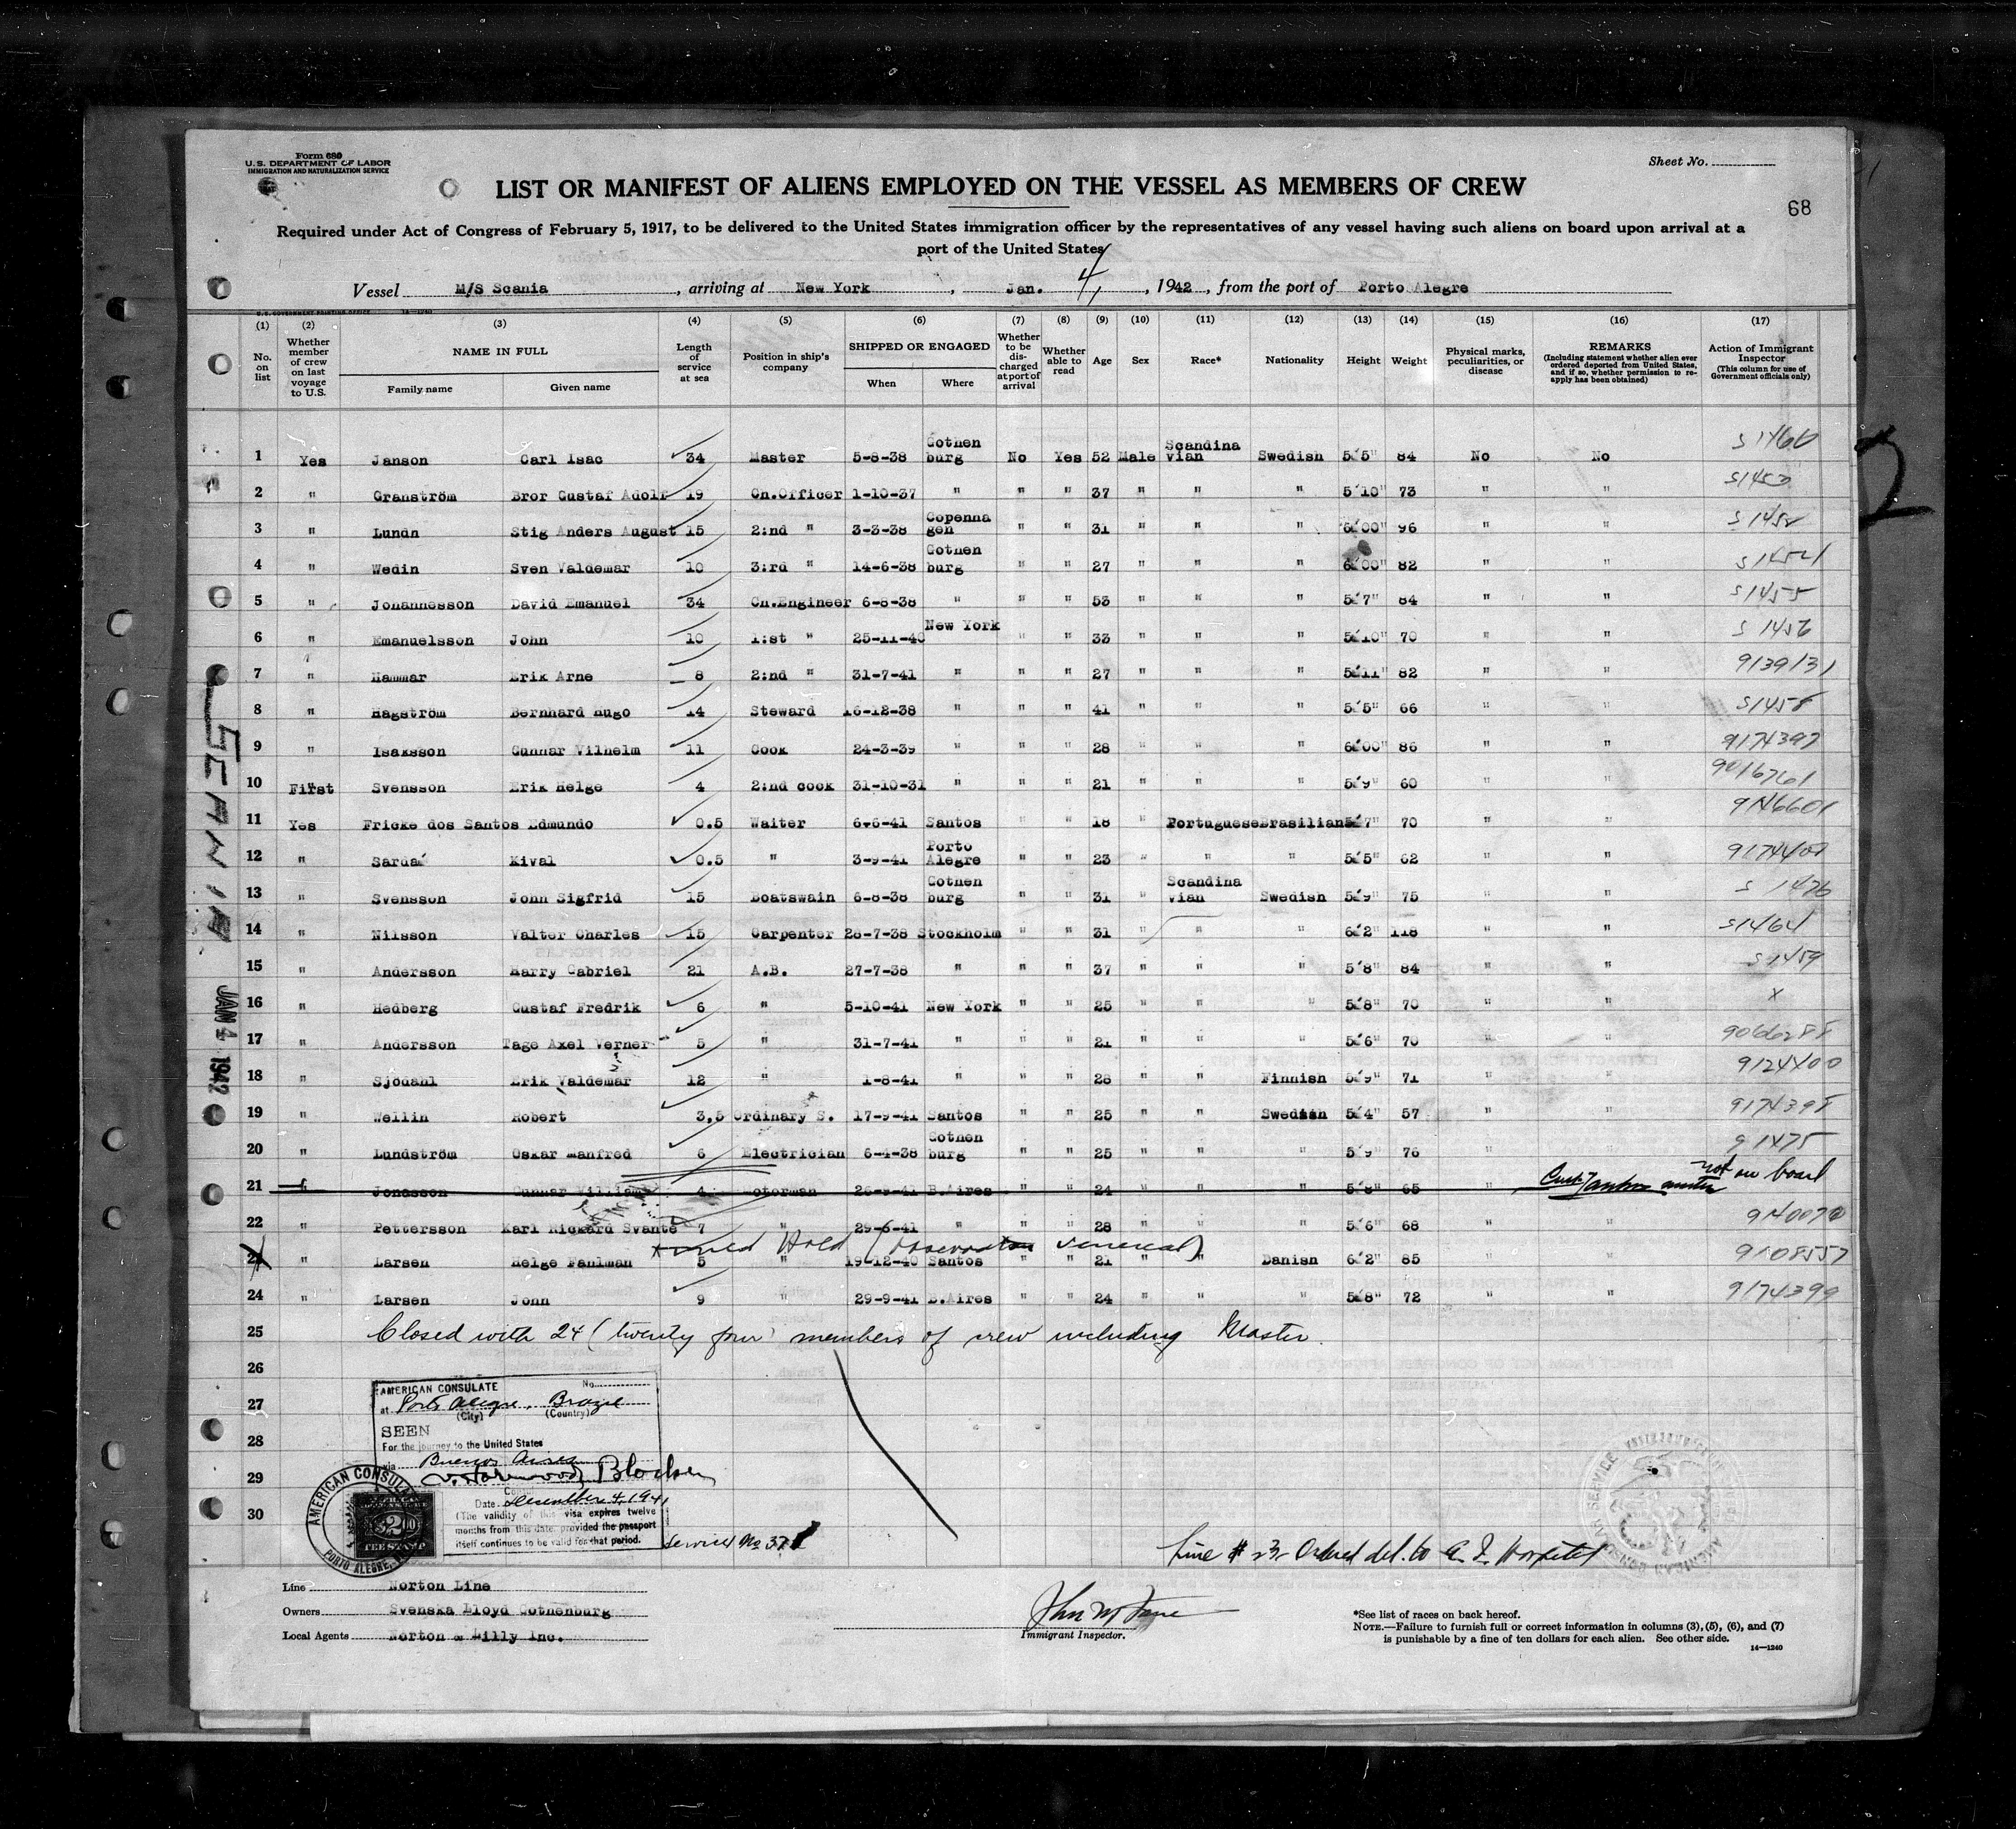 Form 680
U. S. DEPARTMENT OF LABOR
IMMIGRATION AND NATURALIZATION SERVICE
Sheet No.
LIST OR MANIFEST OF ALIENS EMPLOYED ON THE VESSEL AS MEMBERS OF CREW
68
Required under Act of Congress of February 5, 1917, to be delivered to the United States immigration officer by the representatives of any vessel having such aliens on board upon arrival at a
port of the United States
Vessel M/S Scania, arriving at New York, Jan. 4, 1942, from the port of Porto Alegre
U.S. GOVERNMENT PRINTING OFFICE 14-1240
(1) (2) (3) (4) (5) (6) (7) (8) (9) (10) (11) (12) (13) (14) (15) (16) (17)
No. on list
Whether member of crew on last voyage to U.S.
NAME IN FULL
Family name Given name
Length of service at sea
Position in ship's company
SHIPPED OR ENGAGED
When Where
Whether to be discharged at port of arrival
Whether able to read
Age
Sex
Race*
Nationality
Height
Weight
Physical marks, peculiarities, or disease
REMARKS
(Including statement whether alien ever ordered deported from United States, and if so, whether permission to re-apply has been obtained)
Action of Immigrant Inspector
(This column for use of Government officials only)
1 Yes Janson Carl Isac 34 Master 5-8-38 Gothen burg No Yes 52 Male Scandina vian Swedish 5'5" 84 No No S1460
2 " Granström Bror Gustaf Adolf 19 Ch.Officer 1-10-37 " " " 37 " " " 5'10" 73 " " S1453
3 " Lundh Stig Anders August 15 2:nd " 3-3-38 Copenha gen " " 31 " " " 6'00" 96 " "
4 " Wedin Sven Valdemar 10 3:rd " 14-6-38 Gothen burg " " 27 " " " 6'00" 82 " "
5 " Johannesson David Emanuel 34 Ch.Engineer 6-8-38 " " " 53 " " " 5'7" 84 " " S1455
6 " Emanuelsson John 10 1:st " 25-11-40 New York " " 33 " " " 5'10" 70 " " S 1456
7 " Hammar Erik Arne 8 2:nd " 31-7-41 " " " 27 " " " 5'11" 82 " " 9139131
8 " Hagström Bernhard Hugo 14 Steward 16-12-38 " " " 41 " " " 5'5" 66 " " S1458
9 " Isaksson Gunnar Vilhelm 11 Cook 24-3-39 " " " 28 " " " 6'00" 86 " " 9174397
10 First Svensson Erik Helge 4 2:nd cook 31-10-31 " " " 21 " " " 5'9" 60 " " 9016761
11 Yes Fricke dos Santos Edmundo 0.5 Waiter 6-6-41 Santos " " 18 " Portuguese Brasilian 5'7" 70 " "
12 " Sarda Kival 0.5 " 3-9-41 Porto Alegre " " 23 " " " 5'5" 62 " "
13 " Svensson John Sigfrid 15 Boatswain 6-8-38 Gothen burg " " 31 " Scandina vian Swedish 5'9" 75 " " S 1476
14 " Nilsson Valter Charles 15 Carpenter 28-7-38 Stockholm " " 31 " " " 6'2" 118 " " S1464
15 " Andersson Harry Gabriel 21 A.B. 27-7-38 " " " 37 " " " 5'8" 84 " " S1459
16 " Hedberg Gustaf Fredrik 6 " 5-10-41 New York " " 25 " " " 5'8" 70 " " X
17 " Andersson Tage Axel Verner 5 " 31-7-41 " " " 21 " " " 5'6" 70 " " 9066288
18 " Sjödahl Erik Valdemar 12 " 1-8-41 " " " 28 " " Finnish 5'9" 71 " " 9124400
19 " Wellin Robert 3,5 Ordinary S. 17-9-41 Santos " " 25 " " Swedish 5'4" 57 " " 9174398
20 " Lundström Oskar Manfred 6 Electrician 6-4-38 Gothen burg " " 25 " " " 5'9" 76 " " S 1475
21 " Jonasson Gunnar William 4 Motorman 26-9-41 B.Aires " " 24 " " " 5'8" 65 " not on board
22 " Pettersson Karl Rickard Svante 7 " 29-6-41 " " " 28 " " " 5'6" 68 " "
23 " Larsen Helge Fahlman 5 " 19-12-40 Santos " " 21 " " Danish 6'2" 85 " " 9108557
24 " Larsen John 9 " 29-9-41 B.Aires " " 24 " " " 5'8" 72 " " 9174399
25 Closed with 24 (twenty four) members of crew including Master.
26
27
28
29
30
SCANIA
JAN 4 1942
2
AMERICAN CONSULATE No.
at Porto Alegre, Brazil
(City) (Country)
SEEN
For the journey to the United States
via Buenos Aires
Date December 4, 1941
(The validity of this visa expires twelve
months from this date, provided the passport
itself continues to be valid for that period.
AMERICAN CONSULA
PORTO ALEGRE,
FEE STAMP
Service No 371
Line # 23 Ordered del. to E. I. Hospital
Line Norton Line
Owners Svenska Lloyd Gothenburg
Local Agents Norton & Lilly Inc.
Immigrant Inspector.
*See list of races on back hereof.
NOTE.—Failure to furnish full or correct information in columns (3), (5), (6), and (7)
is punishable by a fine of ten dollars for each alien. See other side.
14—1240